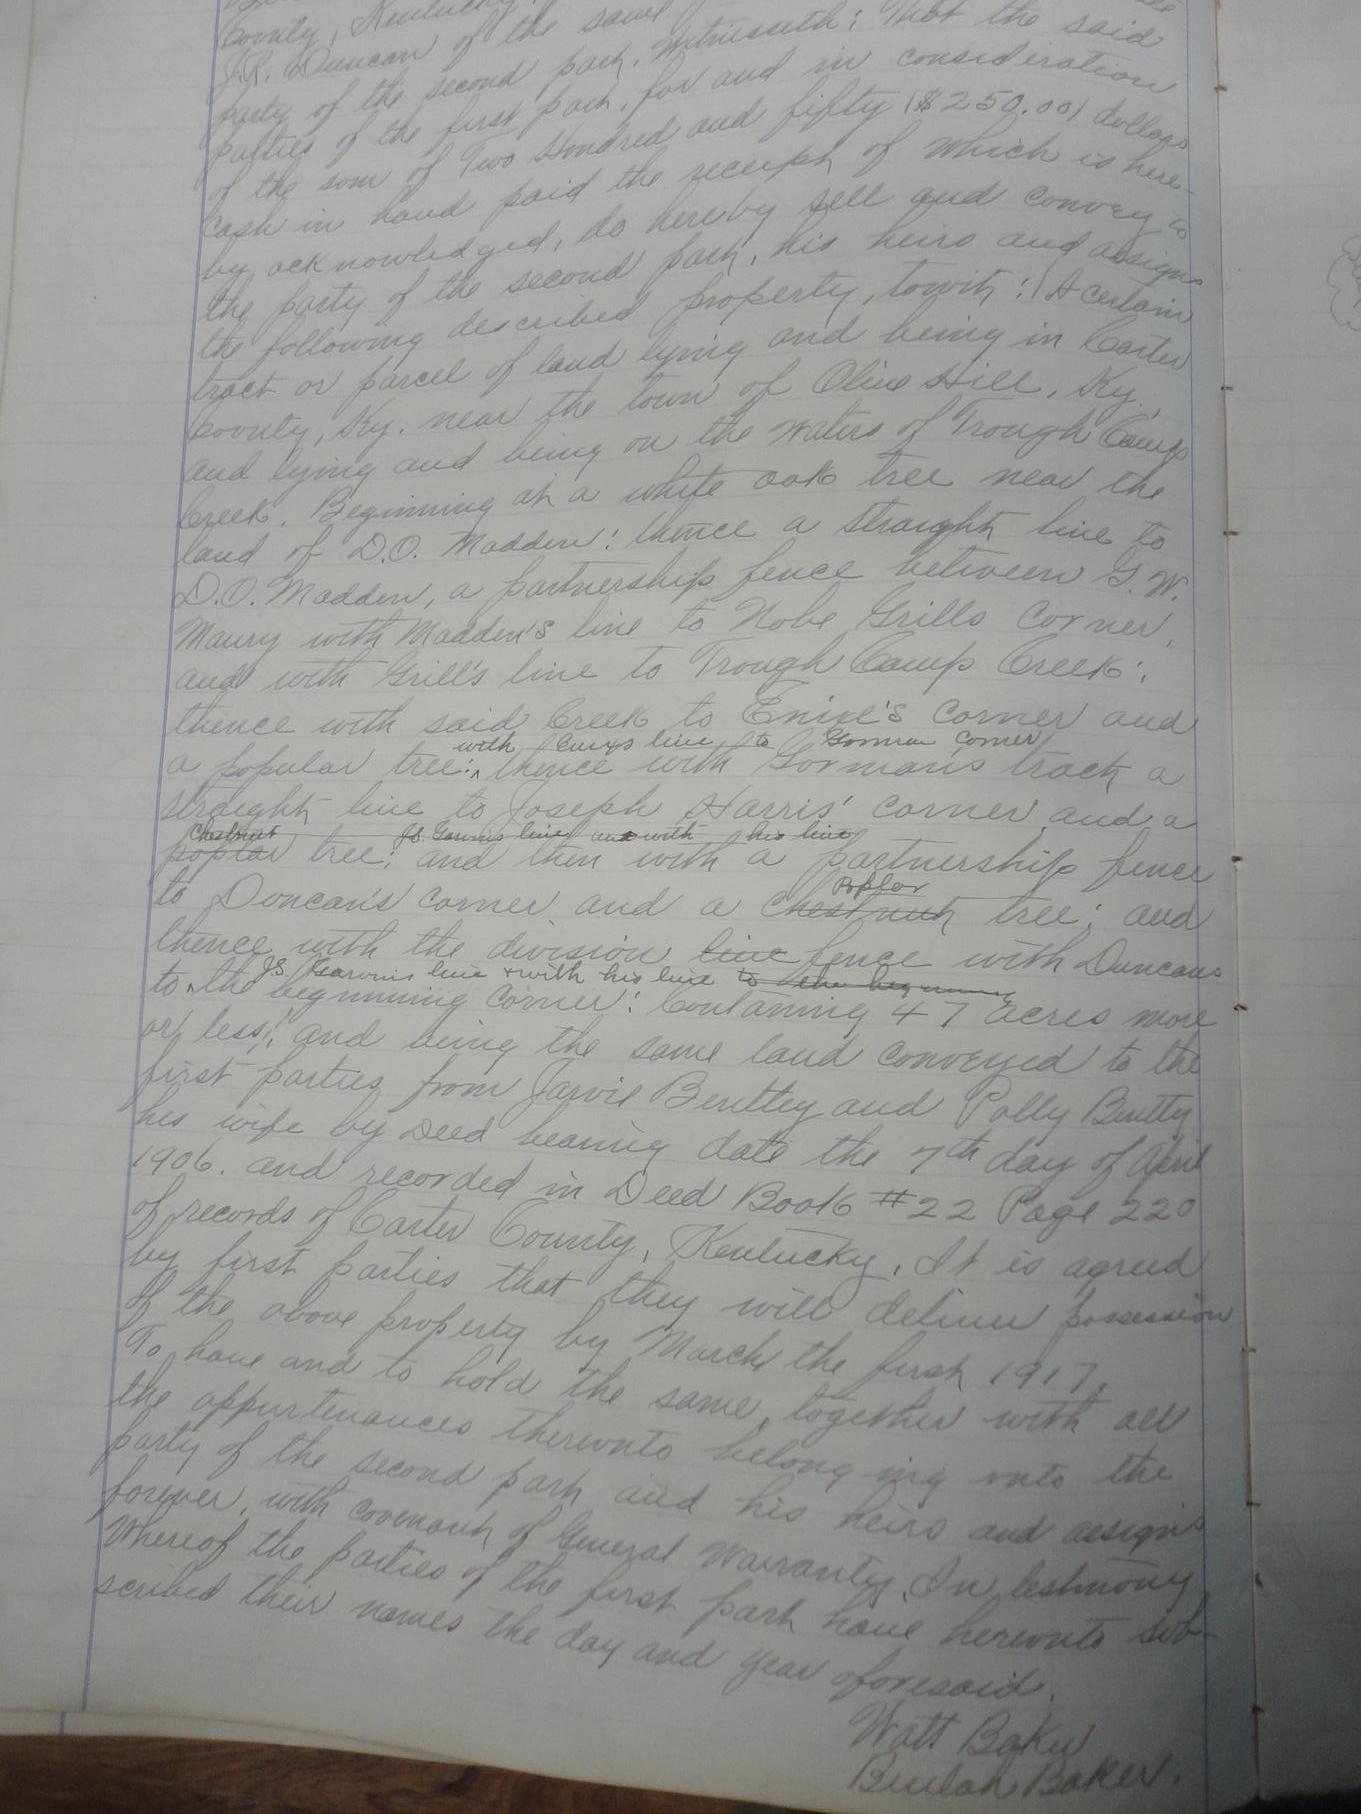 County, Kentucky,
J.R. Duncan of the same
party of the second part, Witnesseth: That the said
parties of the first part, for and in consideration
of the sum of Two Hundred and fifty ($250.00) dollars
cash in hand paid the receipt of which is here-
by acknowledged, do hereby sell and convey to
the party of the second part, his heirs and assigns
the following described property, towit: (A certain
tract or parcel of land lying and being in Carter
County, Ky. near the town of Olive Hill, Ky.,
and lying and being on the waters of Trough Camp
Creek. Beginning at a white oak tree near the
land of D.O. Madden: thence a straight line to
D.O. Madden, a partnership fence between G.W.
Maury with Madden's line to Nobe Grills corner,
and with Grill's line to Trough Camp Creek;
thence with said Creek to Enixe's corner and
with Enixs line to Gorman corner
a popular tree: thence with Gorman's track a
straight line to Joseph Harris' corner and a
Chestnut J.S. line and with his line
poplar tree; and then with a partnership fence
Poplar
to Duncan's corner and a chestnut tree; and
thence with the division line fence with Duncans
J.S. line & with his line to the beginning
to the beginning corner: Containing 47 acres more
or less; and being the same land conveyed to the
first parties from Jarvie Bentley and Polly Bentley
his wife by Deed bearing date the 7th day of April
1906. and recorded in Deed Book #22 Page 220
of records of Carter County, Kentucky. It is agreed
by first parties that they will deliver possession
of the above property by March the first 1917.
To have and to hold the same, together with all
the appurtenances thereunto belonging unto the
party of the second part and his heirs and assigns
forever, with covenant of General Warranty. In testimony
Whereof the parties of the first part have hereunto sub-
scribed their names the day and year aforesaid.
Watt Baker
Beulah Baker.